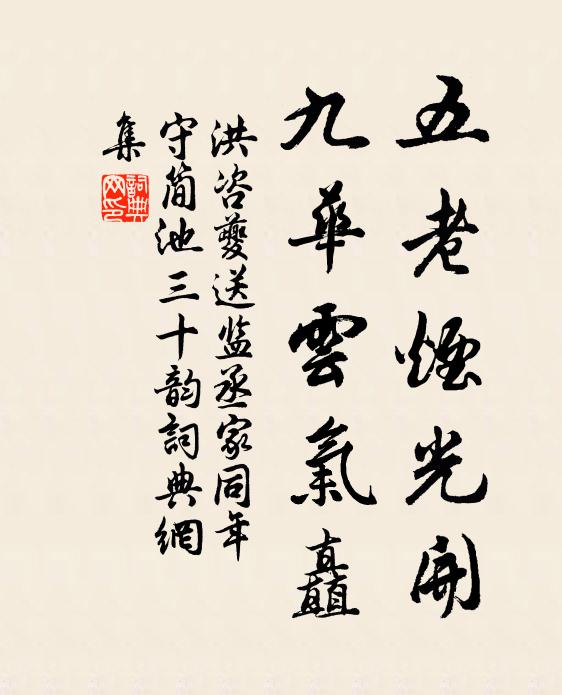 五老煙光開
九華雲氣矗
洪咨夔送监丞家同年
守简池三十韵詞典網
集
詞典
网印